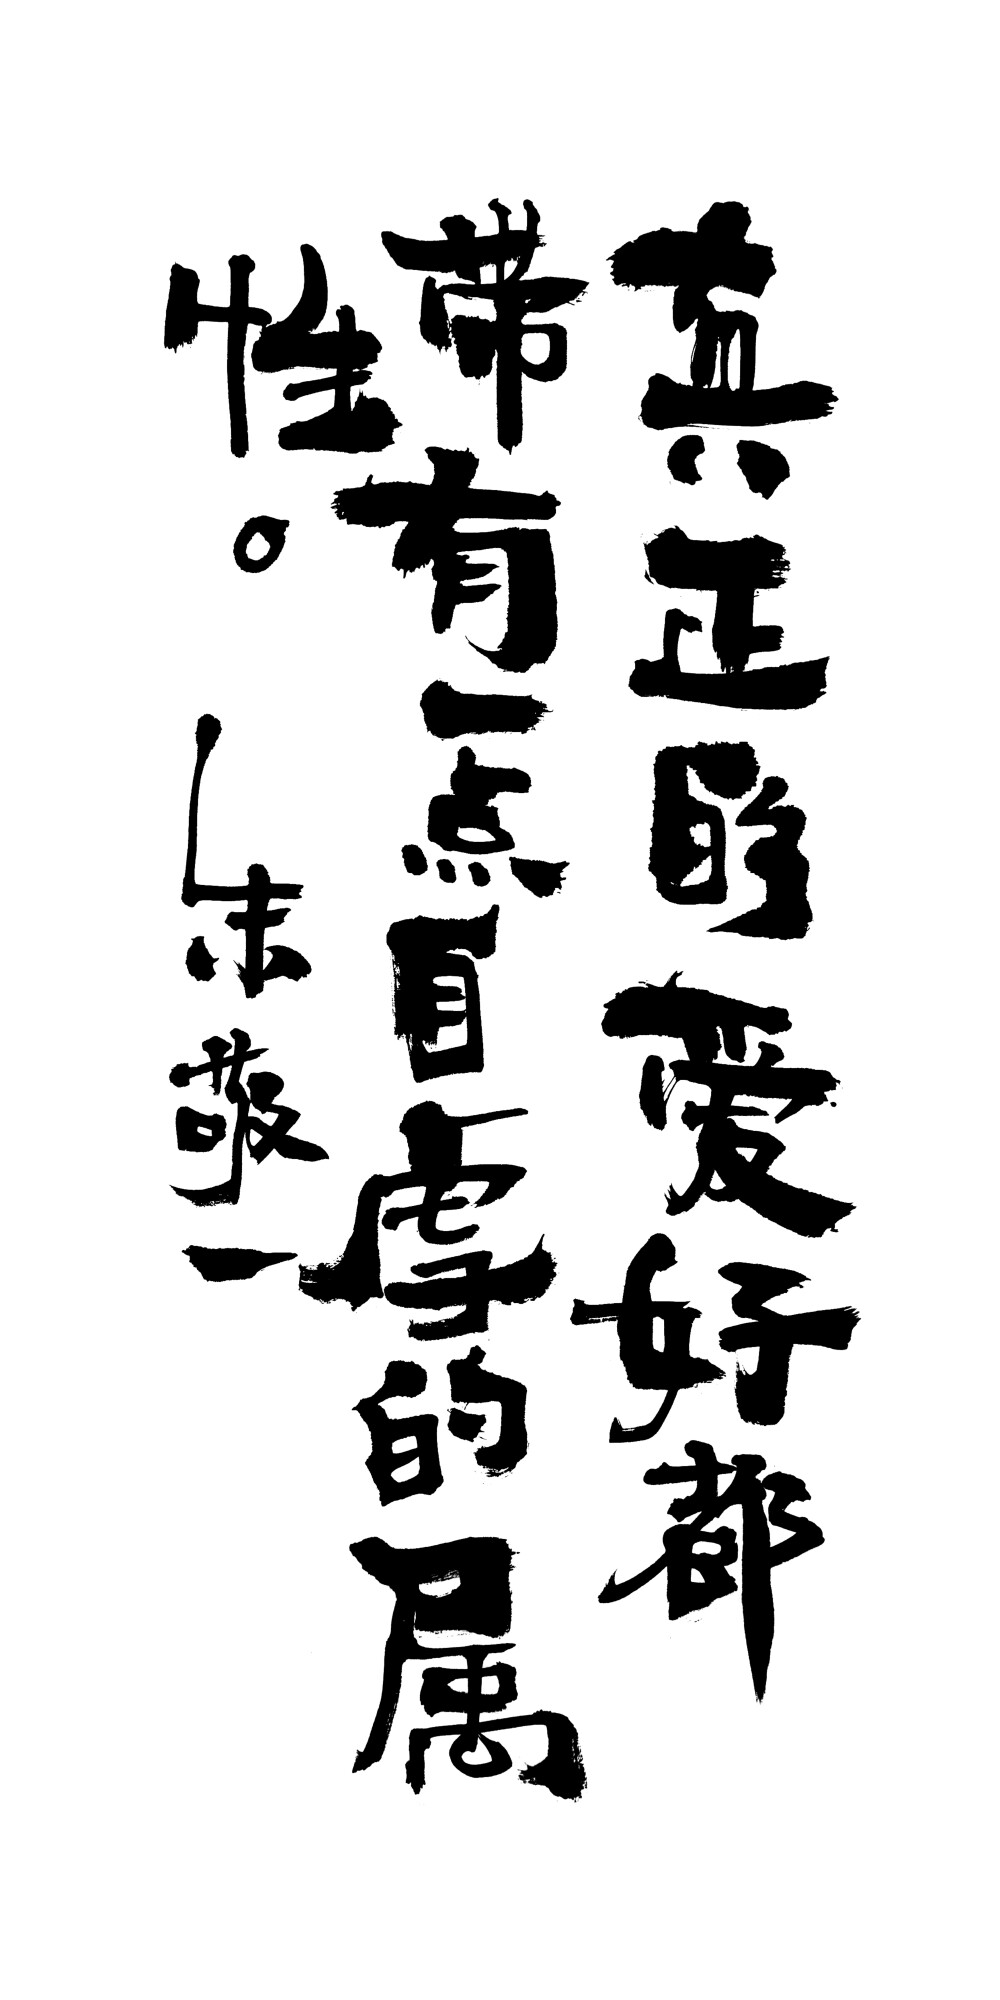 真正的爱好都
带有一点自虐的属
性。朱敬一